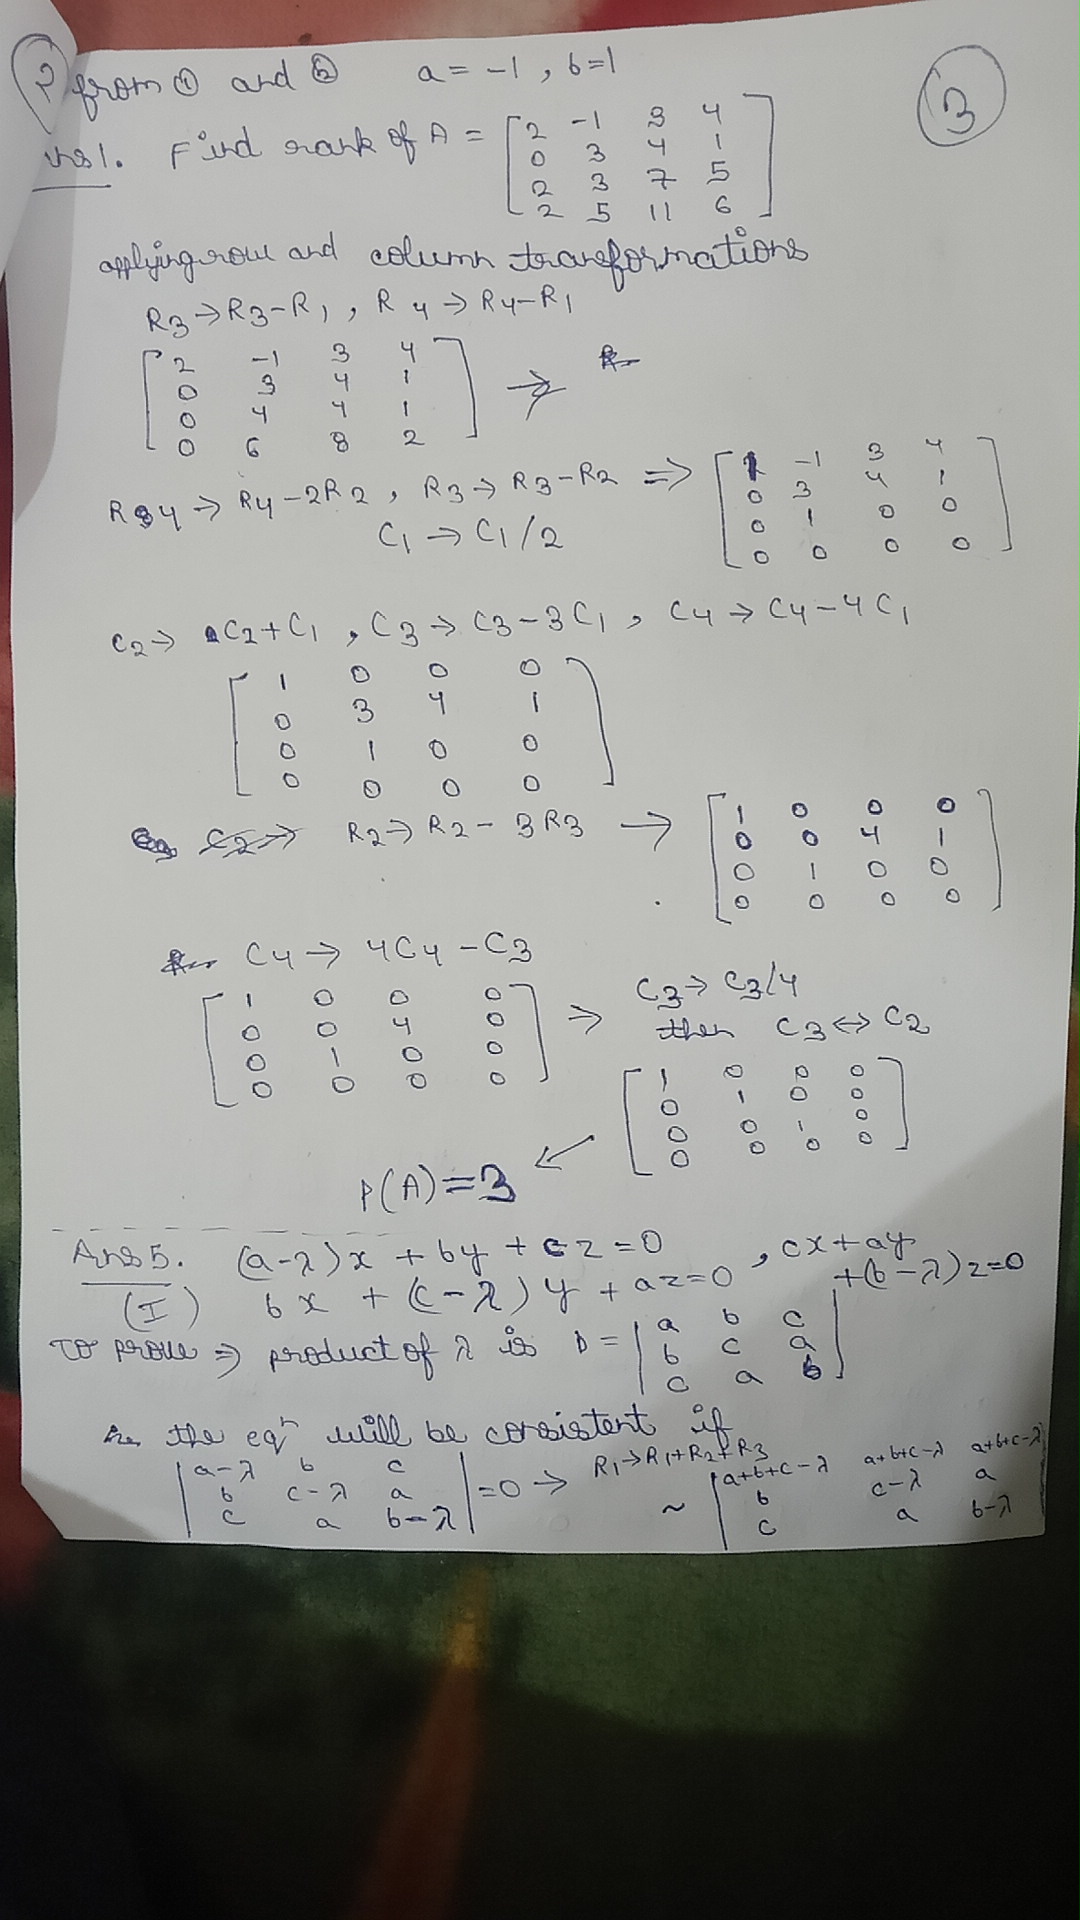 from ① and ② a = -1, b=1
3
Ans1. Find rank of A = [2 -1 3 4
0 3 4 1
2 3 7 5
2 5 11 6]
applying row and column transformations
R3→R3-R1, R4→R4-R1
[2 -1 3 4
0 3 4 1
0 4 4 1
0 6 8 2] →
R4→R4-2R2, R3→R3-R2 ⇒ [1 -1 3 4
0 3 4 1
0 1 0 0
0 0 0 0]
C1→C1/2
C2→ C2+C1, C3→C3-3C1, C4→C4-4C1
[1 0 0 0
0 3 4 1
0 1 0 0
0 0 0 0]
R2→R2-3R3 → [1 0 0 0
0 0 4 1
0 1 0 0
0 0 0 0]
C4→4C4-C3
[1 0 0 0
0 0 4 0
0 1 0 0
0 0 0 0] ⇒
C3→C3/4
then C3↔C2
[1 0 0 0
0 1 0 0
0 0 1 0
0 0 0 0]
ρ(A)=3
Ans5. (a-λ)x + by + cz=0, cx+ay
+(b-λ)z=0
(I) bx + (c-λ)y + az=0
To prove ⇒ product of λ is D = |a b c
b c a
c a b|
the eqn will be consistent if
|a-λ b c
b c-λ a
c a b-λ| =0 → R1→R1+R2+R3
~ |a+b+c-λ a+b+c-λ a+b+c-λ
b c-λ a
c a b-λ|